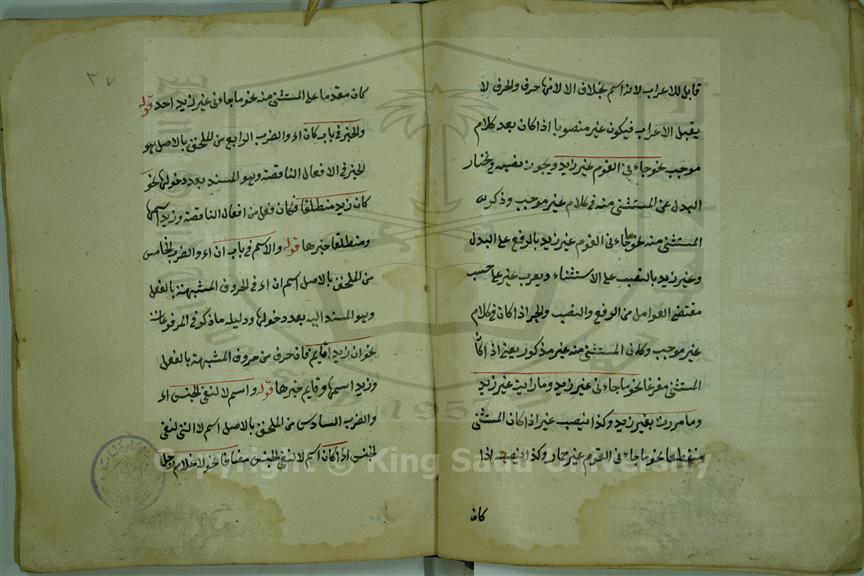 قابل للاعراب لانه اسم بخلاف الا لانها حرف والحرف لا
يقبل الاعراب فيكون غير منصوبا اذا كان بعد كلام
موجب نحو جاءنى القوم غير زيد ويجوز نصبه ويختار
البدل عن المستثنى منه فى كلام غير موجب وذكر
المستثنى منه نحو ما جاءنى القوم غير زيد بالرفع على البدل
وغير زيد بالنصب على الاستثناء ويعرب غير على حسب
مقتضى العوامل من الرفع والنصب والجر اذا كان فى كلام
غير موجب وكان المستثنى منه غير مذكور يعنى اذا كان
المستثنى مفرغا نحو ما جاءنى غير زيد وما رايت غير زيد
وما مررت بغير زيد وكذا ينصب غير اذا كان المستثنى
منقطعا نحو ما جاءنى القوم غير حمار وكذا ينصب اذا
كان
٢٧
كان مقدما على المستثنى منه نحو ما جاءنى غير زيد احد قوله
والخبر فى باب كان اه والضرب الرابع من الملحق بالاصل هو
الخبر فى الافعال الناقصة وهو المسند بعد دخولها نحو
كان زيد منطلقا فكان فعل من افعال الناقصة وزيد اسمها
ومنطلقا خبرها قوله والاسم فى باب ان اه والضرب الخامس
من الملحق بالاصل اسم ان اه فى الحروف المشبهة بالفعل
وهو المسند اليه بعد دخولها ودليله ما ذكر فى المرفوعات
نحو ان زيدا قايم فان حرف من حروف المشبهة بالفعل
وزيد اسمها وقايم خبرها قوله واسم لا لنفى الجنس اه
والضرب السادس من الملحق بالاصل اسم لا التى لنفى
الجنس اذا كان اسم لا لنفى الجنس مضافا نحو لا غلام رجل
Copyright © King Saud University
1957